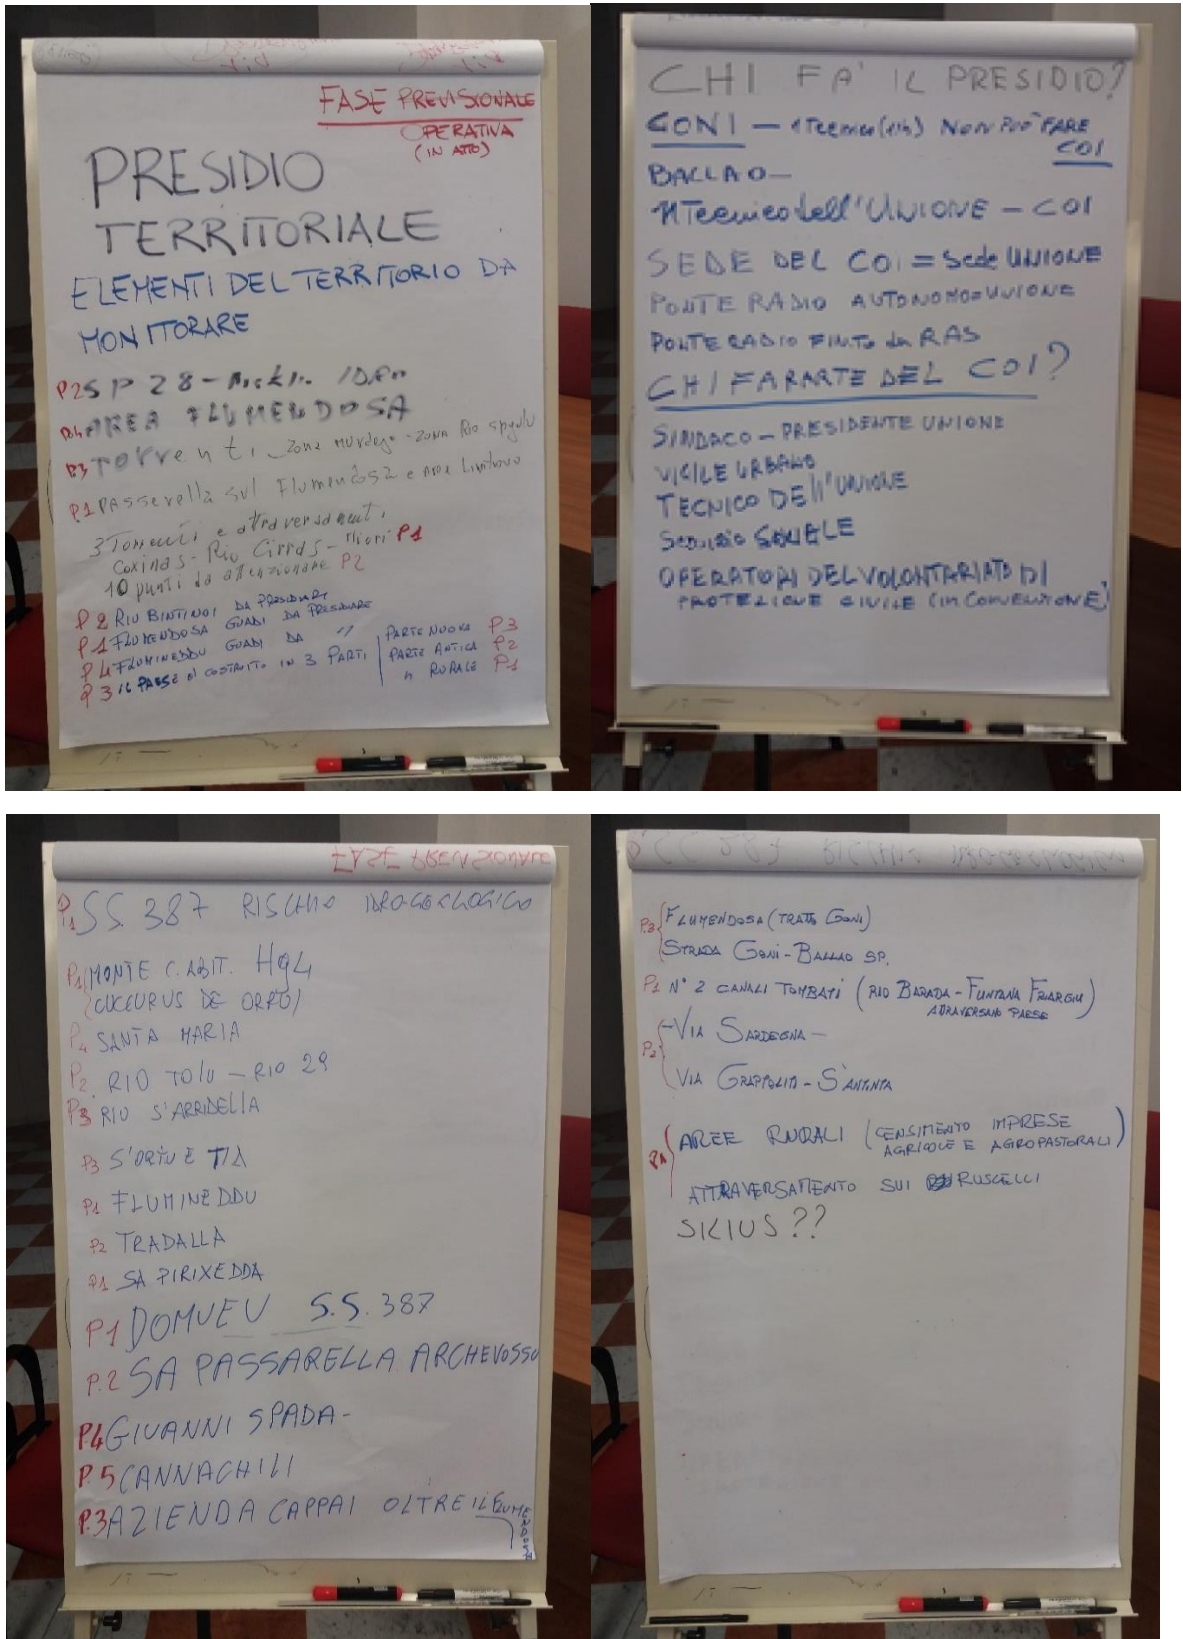 FASE PREVISIONALE
OPERATIVA
(IN ATTO)
PRESIDIO
TERRITORIALE
ELEMENTI DEL TERRITORIO DA
MONITORARE
P2 SP 28 -
AREA FLUMENDOSA
P3 Torrenti Zona Murdega - Zona Rio
P1 PASSERELLA sul Flumendosa e area Limitrofa
3 Torrenti e attraversamenti
Coxinas - Riu Cirras - Miori P1
10 punti da attenzionare P2
P2 RIU BINTINOI DA PRESIDIARE
P1 FLUMENDOSA GUADI DA PRESIDIARE
P4 FLUMINEDDU GUADI DA "
P3 IL PAESE È COSTRUITO IN 3 PARTI
PARTE NUOVA P3
PARTE ANTICA P2
" RURALE P1
CHI FA' IL PRESIDIO?
GONI - 1 Tecnico (11h) NON PUO' FARE
COI
BALLAO -
Tecnico dell'UNIONE - COI
SEDE DEL COI = Sede UNIONE
PONTE RADIO AUTONOMO = UNIONE
PONTE RADIO da RAS
CHI FA PARTE DEL COI?
SINDACO - PRESIDENTE UNIONE
VIGILE URBANO
TECNICO DELL'UNIONE
Servizio SOCIALE
OPERATORI DEL VOLONTARIATO DI
PROTEZIONE CIVILE (IN CONVENZIONE)
FASE PREVISIONALE
P1 SS. 387 RISCHIO IDROGEOLOGICO
P1 MONTE C. ABIT. Hg4
(CUCCURUS DE ORFO)
P4 SANTA MARIA
P2 RIO TOLU - RIO 29
P3 RIU S'ARRIDELIA
P3 S'ORTU E TIA
P1 FLUMINEDDU
P2 TRADALLA
P1 SA PIRIXEDDA
P1 DOMUEU S.S. 387
P.2 SA PASSARELLA ARCHEVOSSU
P.4 GIUANNI SPADA -
P.5 CANNACHILI
P.3 AZIENDA CAPPAI OLTRE IL FLUMENDOSA
SS 387 RISCHIO IDROGEOLOGICO
P.3 FLUMENDOSA (TRATTO GONI)
STRADA GONI - BALLAO SP.
P1 N° 2 CANALI TOMBATI (RIO BARADA - FUNTANA FRIARGIU)
ATTRAVERSANO PAESE
P2 - VIA SARDEGNA -
VIA GRAPPOLITI - S'ANTINTA
P1 AREE RURALI (CENSIMENTO IMPRESE
AGRICOLE E AGROPASTORALI)
ATTRAVERSAMENTO SUI RUSCELLI
SILIUS??